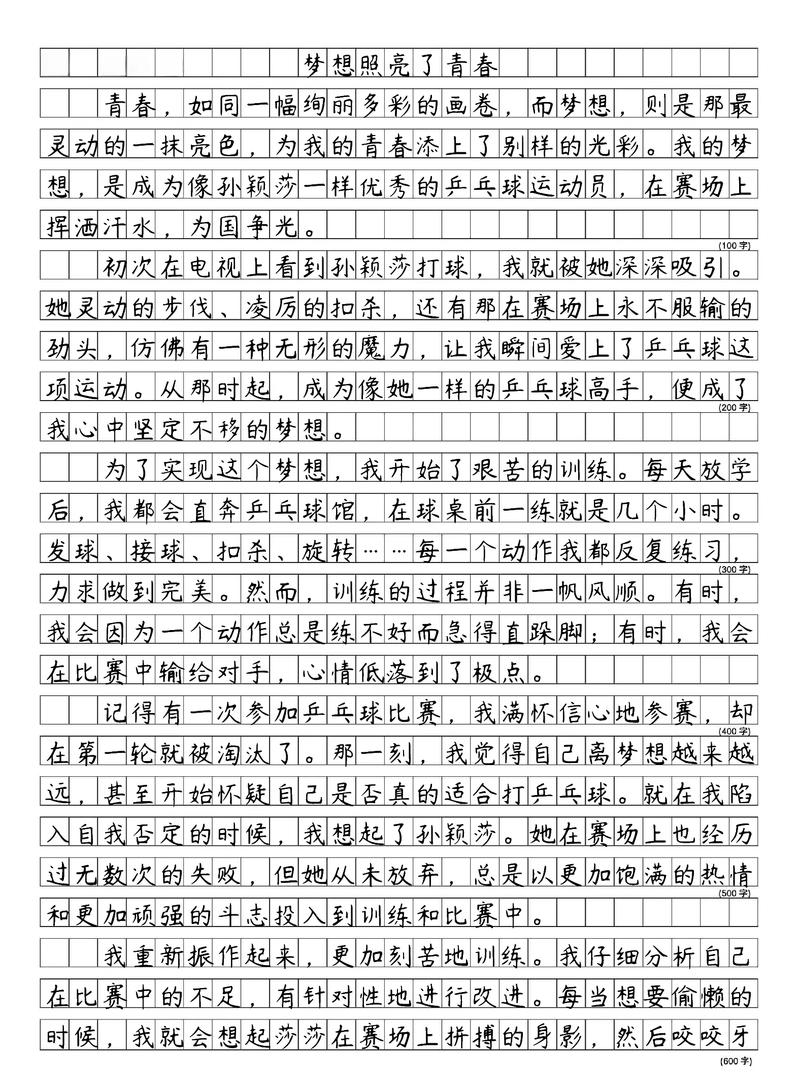 梦想照亮了青春
青春，如同一幅绚丽多彩的画卷，而梦想，则是那最
灵动的一抹亮色，为我的青春添上了别样的光彩。我的梦
想，是成为像孙颖莎一样优秀的乒乓球运动员，在赛场上
挥洒汗水，为国争光。
(100字)
初次在电视上看到孙颖莎打球，我就被她深深吸引。
她灵动的步伐、凌厉的扣杀，还有那在赛场上永不服输的
劲头，仿佛有一种无形的魔力，让我瞬间爱上了乒乓球这
项运动。从那时起，成为像她一样的乒乓球高手，便成了
(200字)
我心中坚定不移的梦想。
为了实现这个梦想，我开始了艰苦的训练。每天放学
后，我都会直奔乒乓球馆，在球桌前一练就是几个小时。
发球、接球、扣杀、旋转……每一个动作我都反复练习，
(300字)
力求做到完美。然而，训练的过程并非一帆风顺。有时，
我会因为一个动作总是练不好而急得直跺脚；有时，我会
在比赛中输给对手，心情低落到了极点。
记得有一次参加乒乓球比赛，我满怀信心地参赛，却
(400字)
在第一轮就被淘汰了。那一刻，我觉得自己离梦想越来越
远，甚至开始怀疑自己是否真的适合打乒乓球。就在我陷
入自我否定的时候，我想起了孙颖莎。她在赛场上也经历
过无数次的失败，但她从未放弃，总是以更加饱满的热情
(500字)
和更加顽强的斗志投入到训练和比赛中。
我重新振作起来，更加刻苦地训练。我仔细分析自己
在比赛中的不足，有针对性地进行改进。每当想要偷懒的
时候，我就会想起莎莎在赛场上拼搏的身影，然后咬咬牙
(600字)